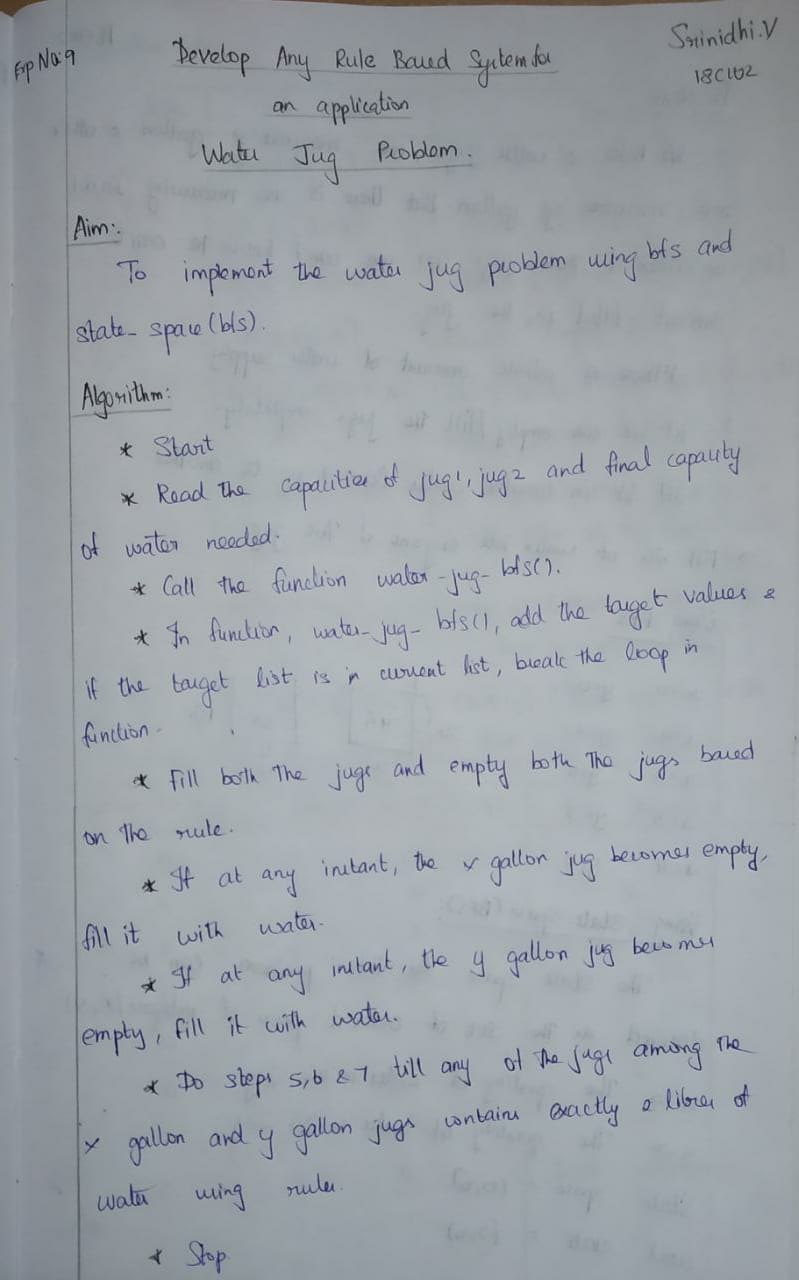 Srinidhi.V
18C102
Exp No:9
Develop Any Rule Based System for
an application
Water Jug Problem.
Aim:
To implement the water jug problem using bfs and
state-space (bfs).
Algorithm:
* Start
* Read the capacities of jug1, jug2 and final capacity
of water needed.
* Call the function water-jug-bfs().
* In function, water-jug-bfs(), add the target values &
if the target list is in current list, break the loop in
function.
* Fill both the jugs and empty both the jugs based
on the rule.
* If at any instant, the x gallon jug becomes empty,
fill it with water.
* If at any instant, the y gallon jug becomes
empty, fill it with water.
* Do steps 5,6 & 7 till any of the jugs among the
x gallon and y gallon jugs contains exactly 2 litres of
water using rules.
* Stop